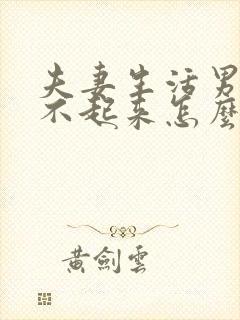 夫妻生活男
不起来怎麼
黄劍雲